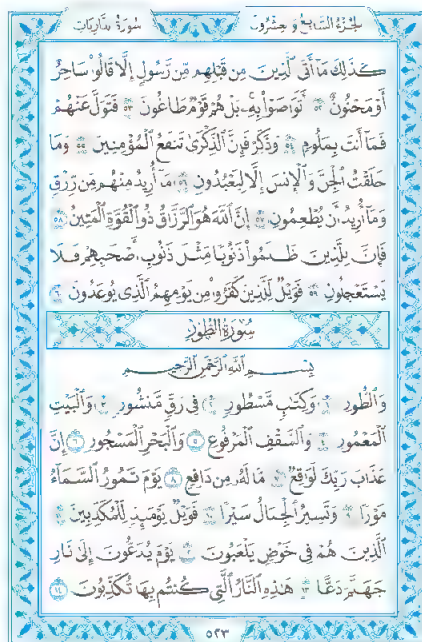 الجزء السابع و عشرون سورة الذاريات
كَذَٰلِكَ مَا أَتَى الَّذِينَ مِن قَبْلِهِم مِّن رَّسُولٍ إِلَّا قَالُوا سَاحِرٌ
أَوْ مَجْنُونٌ ٥٢ أَتَوَاصَوْا بِهِ بَلْ هُمْ قَوْمٌ طَاغُونَ ٥٣ فَتَوَلَّ عَنْهُمْ
فَمَا أَنتَ بِمَلُومٍ ٥٤ وَذَكِّرْ فَإِنَّ الذِّكْرَىٰ تَنفَعُ الْمُؤْمِنِينَ ٥٥ وَمَا
خَلَقْتُ الْجِنَّ وَالْإِنسَ إِلَّا لِيَعْبُدُونِ ٥٦ مَا أُرِيدُ مِنْهُم مِّن رِّزْقٍ
وَمَا أُرِيدُ أَن يُطْعِمُونِ ٥٧ إِنَّ اللَّهَ هُوَ الرَّزَّاقُ ذُو الْقُوَّةِ الْمَتِينُ ٥٨
فَإِنَّ لِلَّذِينَ ظَلَمُوا ذَنُوبًا مِّثْلَ ذَنُوبِ أَصْحَابِهِمْ فَلَا
يَسْتَعْجِلُونِ ٥٩ فَوَيْلٌ لِّلَّذِينَ كَفَرُوا مِن يَوْمِهِمُ الَّذِي يُوعَدُونَ ٦٠
سُورَةُ الطُّورِ
بِسْمِ اللَّهِ الرَّحْمَٰنِ الرَّحِيمِ
وَالطُّورِ ١ وَكِتَابٍ مَّسْطُورٍ ٢ فِي رَقٍّ مَّنشُورٍ ٣ وَالْبَيْتِ
الْمَعْمُورِ ٤ وَالسَّقْفِ الْمَرْفُوعِ ٥ وَالْبَحْرِ الْمَسْجُورِ ٦ إِنَّ
عَذَابَ رَبِّكَ لَوَاقِعٌ ٧ مَّا لَهُ مِن دَافِعٍ ٨ يَوْمَ تَمُورُ السَّمَاءُ
مَوْرًا ٩ وَتَسِيرُ الْجِبَالُ سَيْرًا ١٠ فَوَيْلٌ يَوْمَئِذٍ لِّلْمُكَذِّبِينَ ١١
الَّذِينَ هُمْ فِي خَوْضٍ يَلْعَبُونَ ١٢ يَوْمَ يُدَعُّونَ إِلَىٰ نَارِ
جَهَنَّمَ دَعًّا ١٣ هَٰذِهِ النَّارُ الَّتِي كُنتُم بِهَا تُكَذِّبُونَ ١٤
٥٢٣